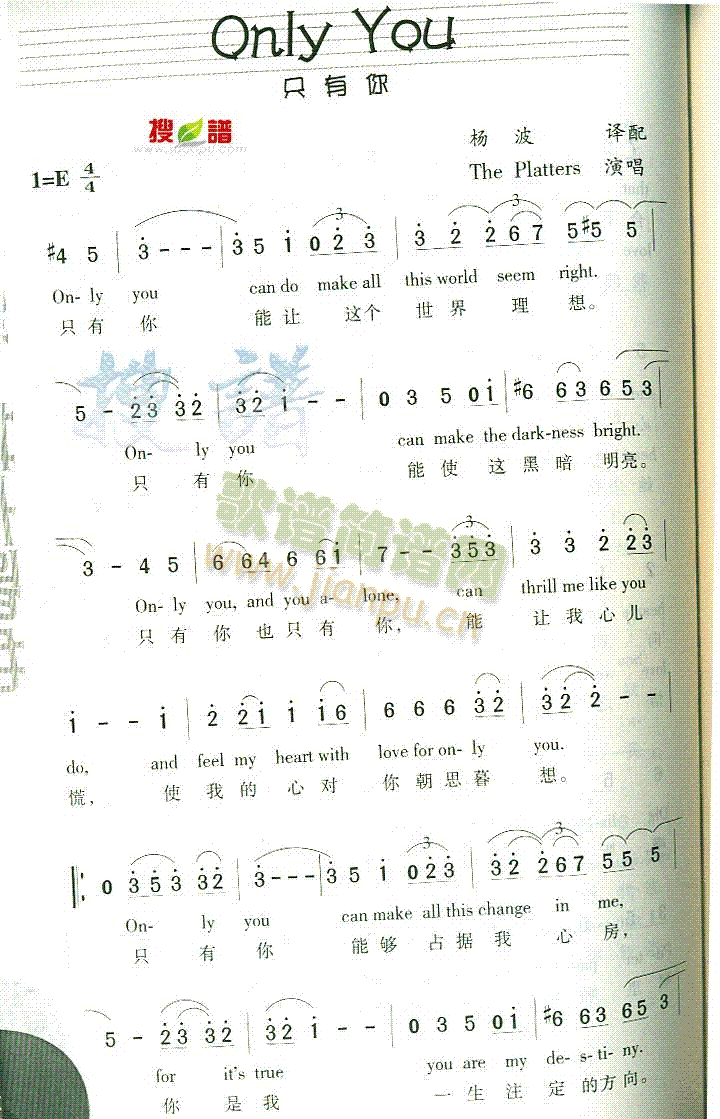 Only You
只有你
搜谱
杨波 译配
1=E 4/4
The Platters 演唱
#4 5 | 3 - - - | 3 5 i 0 2 3 | 3 2 2 6 7 5 #5 5 |
On- ly you can do make all this world seem right.
只有你 能让 这个 世界 理想。
5 - 2 3 3 2 | 3 2 i - - | 0 3 5 0 i | #6 6 3 6 5 3
On- ly you can make the dark-ness bright.
只有你 能使这黑暗明亮。
歌谱简谱网
www.jianpu.cn
3 - 4 5 | 6 6 4 6 6 i | 7 - - 3 5 3 | 3 3 2 2 3
On- ly you, and you a- lone, can thrill me like you
只有你也只有你, 能 让我心儿
i - - i | 2 2 i i i 6 | 6 6 6 3 2 | 3 2 2 - -
do, and feel my heart with love for on- ly you.
慌, 使我的心对 你朝思暮想。
0 3 5 3 3 2 | 3 - - - | 3 5 i 0 2 3 | 3 2 2 6 7 5 5 5
On- ly you can make all this change in me,
只有你 能够 占据我 心房,
5 - 2 3 3 2 | 3 2 i - - | 0 3 5 0 i | #6 6 3 6 5 3
for it's true you are my de- s- ti- ny.
你是我 一生注定的方向。